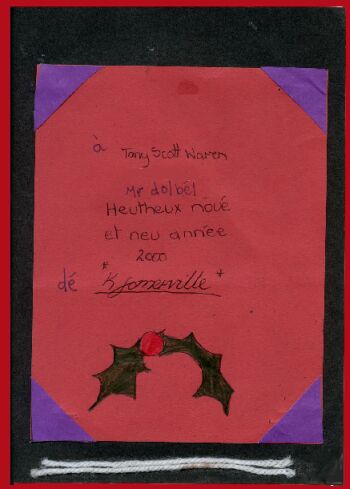 à Tony Scott Warren
Mr dolbél
Heutheux noué
et neu année
2000
dé Ksomerville